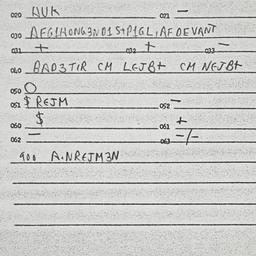 020 AUK 021 —
030 AFG1HONG3ND1S+P1GL,AFDEVANT
031 + 032 + 033 —
040 BAD3TIR CM LEJB+ CM NEJB+
050 O
051 $ REJM 052 —
060 $ 061 +
062 — 063 -/-
900 A.NREJM3N